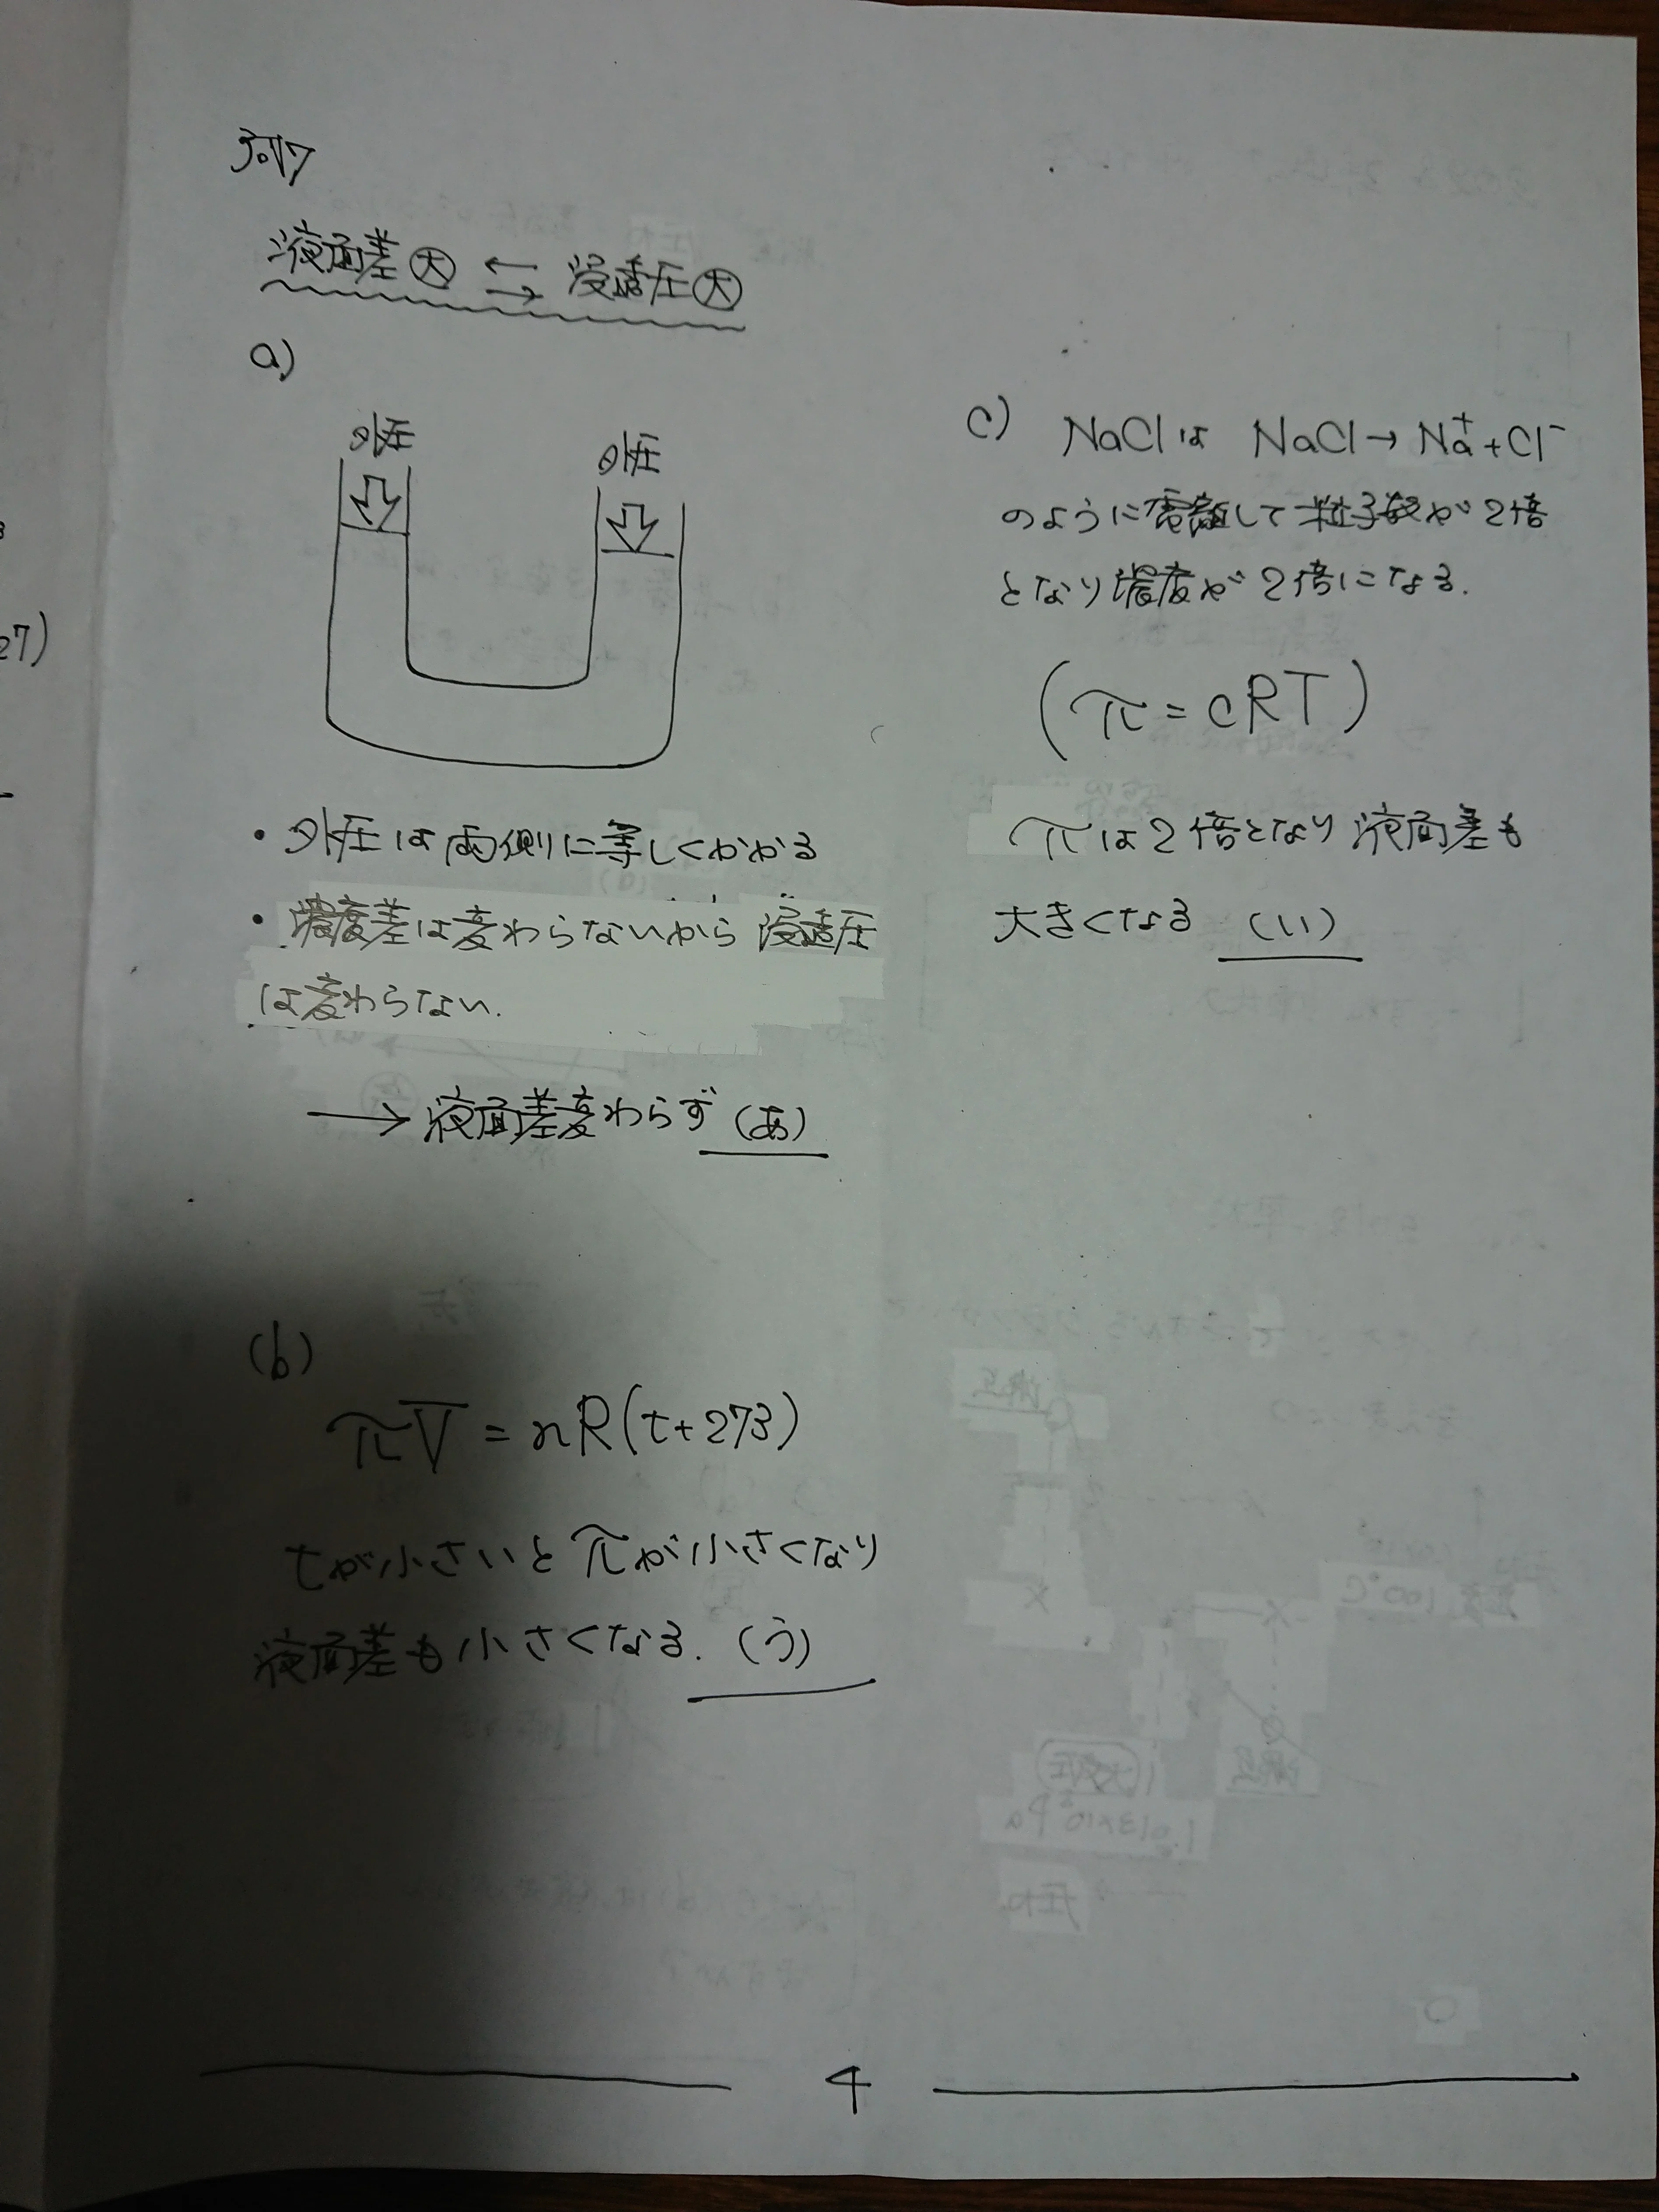 液面差大 ⇄ 浸透圧大
a)
外圧
外圧
・外圧は両側に等しくかかる
・濃度差は変わらないから浸透圧
は変わらない.
→ 液面差変わらず (あ)
(b)
πV = nR(t+273)
tが小さいとπが小さくなり
液面差も小さくなる. (う)
c) NaClは NaCl→Na⁺+Cl⁻
のように電離して粒子数が2倍
となり濃度が2倍になる.
(π=cRT)
πは2倍となり液面差も
大きくなる (い)
27)
4